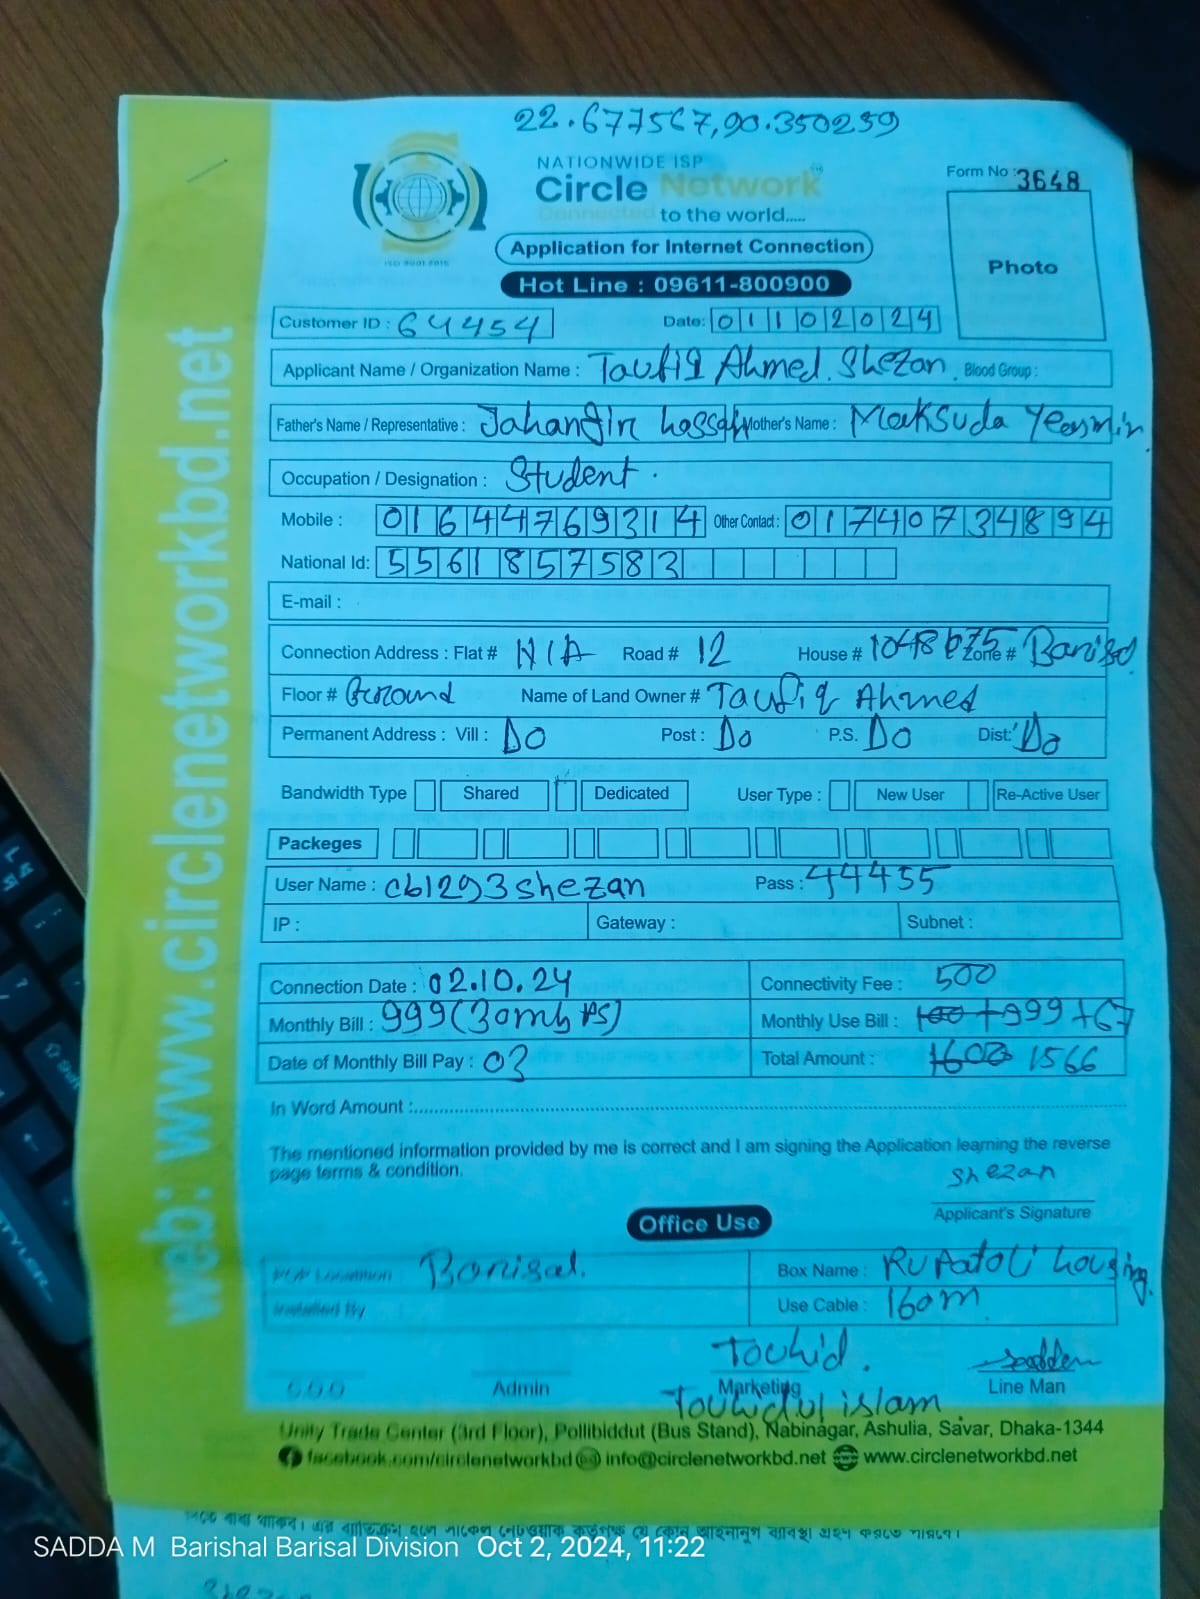 22.677567,90.350259
NATIONWIDE ISP
Circle Network
Connected to the world.....
Form No : 3648
Application for Internet Connection
Photo
Hot Line : 09611-800900
ISO 9001:2015
Customer ID : 64454 Date: 01102024
Applicant Name / Organization Name : Taufiq Ahmed. Shezan. Blood Group :
Father's Name / Representative : Jahangir Hossain Mother's Name : Maksuda Yeasmin
Occupation / Designation : Student.
Mobile : 01644769314 Other Contact : 01740734894
National Id: 5561857583
E-mail :
Connection Address : Flat # N/A Road # 12 House # Zone # Barisal
Floor # Ground Name of Land Owner # Taufiq Ahmed
Permanent Address : Vill : Do Post : Do P.S. Do Dist: Do
Bandwidth Type Shared Dedicated User Type : New User Re-Active User
Packeges
User Name : cb1293shezan Pass : 44455
IP : Gateway : Subnet :
Connection Date : 02.10.24 Connectivity Fee : 500
Monthly Bill : 999(30mbps) Monthly Use Bill : 100 +999+67
Date of Monthly Bill Pay : 03 Total Amount : 1566
In Word Amount :
The mentioned information provided by me is correct and I am signing the Application learning the reverse
page terms & condition.
Shezan
Applicant's Signature
Office Use
POP Location Barisal. Box Name : RUPatoli housing.
Installed By Use Cable : 160m
Touhid. Sadden
Admin Marketing Line Man
Touhidul islam
Unity Trade Center (3rd Floor), Pollibiddut (Bus Stand), Nabinagar, Ashulia, Savar, Dhaka-1344
facebook.com/circlenetworkbd info@circlenetworkbd.net www.circlenetworkbd.net
web: www.circlenetworkbd.net
SADDA M Barishal Barisal Division Oct 2, 2024, 11:22